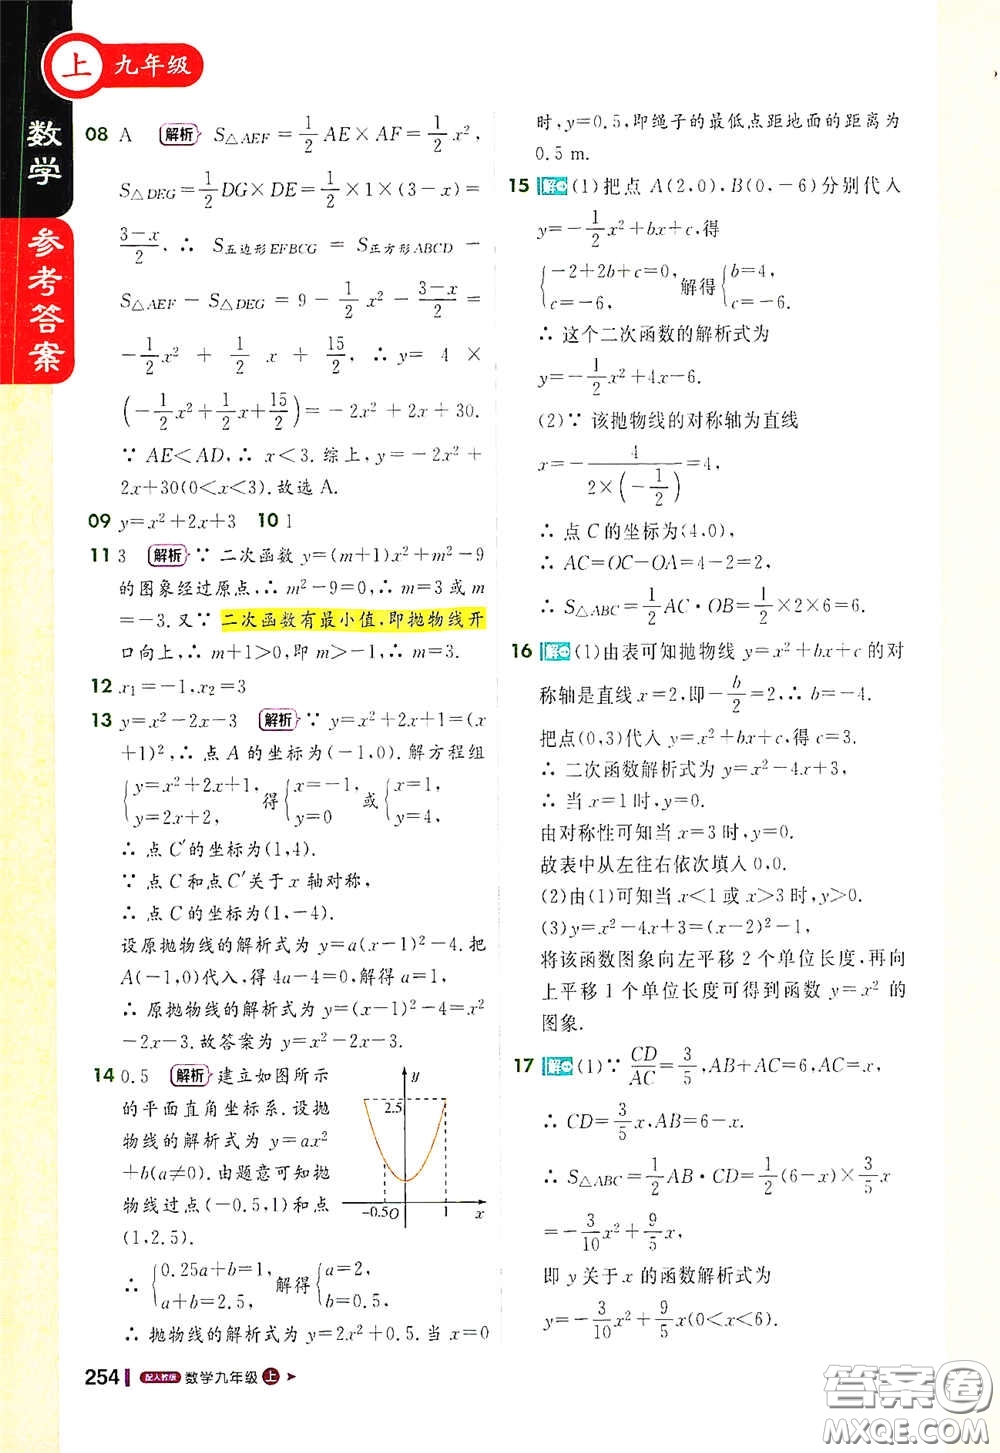 上 九年级
数学
参考答案
08 A 解析 S△AEF=1/2AE×AF=1/2x²,
S△DEG=1/2DG×DE=1/2×1×(3-x)=
(3-x)/2.∴S五边形EFBCG=S正方形ABCD-
S△AEF-S△DEG=9-1/2x²-(3-x)/2=
-1/2x²+1/2x+15/2.∴y=4×
(-1/2x²+1/2x+15/2)=-2x²+2x+30.
∵AE<AD,∴x<3.综上,y=-2x²+
2x+30(0<x<3).故选A.
09 y=x²+2x+3 10 1
11 3 解析 ∵二次函数 y=(m+1)x²+m²-9
的图象经过原点,∴m²-9=0,∴m=3或m
=-3.又∵二次函数有最小值,即抛物线开
口向上,∴m+1>0,即m>-1,∴m=3.
12 x₁=-1,x₂=3
13 y=x²-2x-3 解析 ∵y=x²+2x+1=(x
+1)²,∴点A的坐标为(-1,0).解方程组
{y=x²+2x+1, y=2x+2, 得{x=-1, y=0 或{x=1, y=4,
∴点C′的坐标为(1,4).
∵点C和点C′关于x轴对称,
∴点C的坐标为(1,-4).
设原抛物线的解析式为y=a(x-1)²-4.把
A(-1,0)代入,得4a-4=0,解得a=1.
∴原抛物线的解析式为y=(x-1)²-4=x²
-2x-3.故答案为y=x²-2x-3.
14 0.5 解析 建立如图所示
的平面直角坐标系.设抛
物线的解析式为y=ax²
+b(a≠0).由题意可知抛
物线过点(-0.5,1)和点
(1,2.5).
y
2.5
-0.5 O 1 x
∴{0.25a+b=1, a+b=2.5, 解得{a=2, b=0.5,
∴抛物线的解析式为y=2x²+0.5.当x=0
时,y=0.5,即绳子的最低点距地面的距离为
0.5 m.
15 解 (1)把点A(2,0),B(0,-6)分别代入
y=-1/2x²+bx+c,得
{-2+2b+c=0, c=-6, 解得{b=4, c=-6.
∴这个二次函数的解析式为
y=-1/2x²+4x-6.
(2)∵该抛物线的对称轴为直线
x=-4/(2×(-1/2))=4,
∴点C的坐标为(4,0),
∴AC=OC-OA=4-2=2,
∴S△ABC=1/2AC·OB=1/2×2×6=6.
16 解 (1)由表可知抛物线y=x²+bx+c的对
称轴是直线x=2,即-b/2=2,∴b=-4.
把点(0,3)代入y=x²+bx+c,得c=3.
∴二次函数解析式为y=x²-4x+3,
∴当x=1时,y=0.
由对称性可知当x=3时,y=0.
故表中从左往右依次填入0,0.
(2)由(1)可知当x<1或x>3时,y>0.
(3)y=x²-4x+3=(x-2)²-1,
将该函数图象向左平移2个单位长度,再向
上平移1个单位长度可得到函数y=x²的
图象.
17 解 (1)∵CD/AC=3/5,AB+AC=6,AC=x,
∴CD=3/5x,AB=6-x,
∴S△ABC=1/2AB·CD=1/2(6-x)×3/5x
=-3/10x²+9/5x,
即y关于x的函数解析式为
y=-3/10x²+9/5x(0<x<6).
254 配人教版 数学九年级 上
答案圈
MXQE.COM